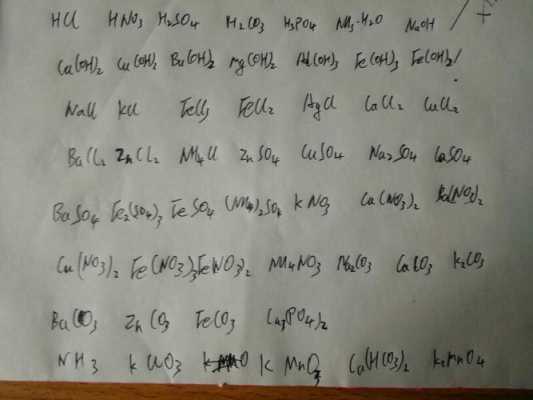 HCl HNO3 H2SO4 H2CO3 H3PO4 NH3·H2O NaOH
Ca(OH)2 Cu(OH)2 Ba(OH)2 Mg(OH)2 Al(OH)3 Fe(OH)3 Fe(OH)2
NaCl KCl FeCl3 FeCl2 AgCl CaCl2 CuCl2
BaCl2 ZnCl2 NH4Cl ZnSO4 CuSO4 Na2SO4 CaSO4
BaSO4 Fe2(SO4)3 FeSO4 (NH4)2SO4 KNO3 Ca(NO3)2 Ba(NO3)2
Cu(NO3)2 Fe(NO3)3 Fe(NO3)2 NH4NO3 Na2CO3 CaCO3 K2CO3
BaCO3 ZnCO3 FeCO3 Ca3(PO4)2
NH3 KClO3 KMnO3 Ca(HCO3)2 K2MnO4